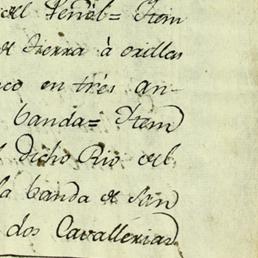 del Peñol= Item
de tierra à orillas
en tres an-
banda= Item
dicho Rio del
la banda de San
dos Cavallerias